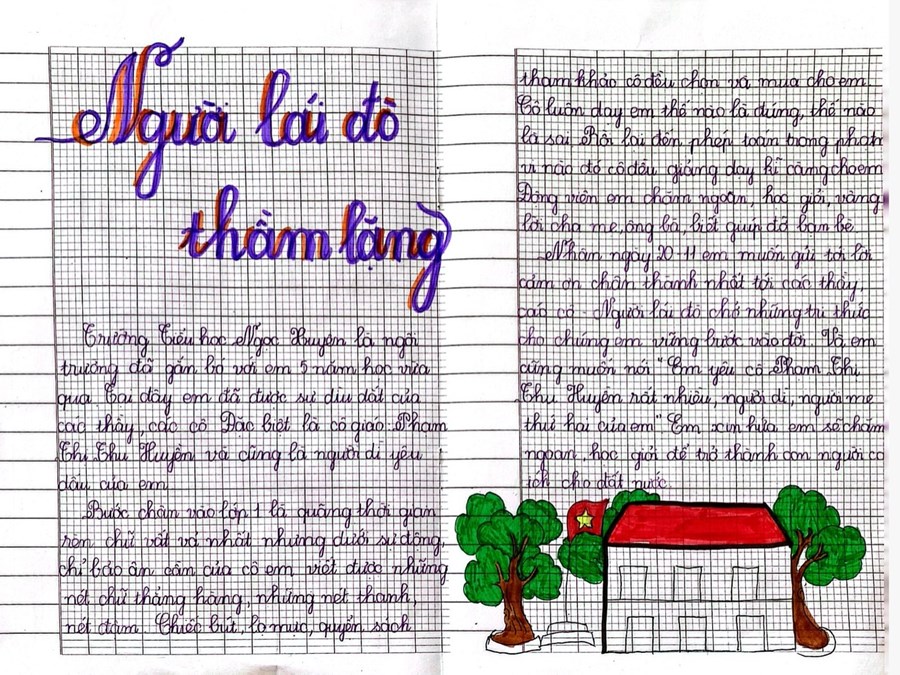 Người lái đò
thầm lặng
Trường Tiểu học Ngọc Xuyên là ngôi
trường đã gắn bó với em 5 năm học vừa
qua. Tại đây em đã được sự dìu dắt của
các thầy, các cô. Đặc biệt là cô giáo: Phạm
Thị Thu Huyền và cũng là người dì yêu
dấu của em.
Bước chân vào lớp 1 là quãng thời gian
rèn chữ vất vả nhất nhưng dưới sự động,
chỉ bảo ân cần của cô em viết được những
nét chữ thẳng hàng, những nét thanh,
nét đậm. Chiếc bút, lọ mực, quyển sách
tham khảo cô đều chọn và mua cho em.
Cô luôn dạy em thế nào là đúng, thế nào
là sai. Rồi lại đến phép toán trong phạm
vi nào đó cô đều giảng dạy kĩ càng cho em.
Động viên em chăm ngoan, học giỏi, vâng
lời cha mẹ, ông bà, biết giúp đỡ bạn bè.
Nhâm ngày 20-11 em muốn gửi tới lời
cảm ơn chân thành nhất tới các thầy,
các cô - Người lái đò chở những tri thức
cho chúng em vững bước vào đời. Và em
cũng muốn nói "Em yêu cô Phạm Thị
Thu Huyền rất nhiều, người dì, người mẹ
thứ hai của em". Em xin hứa em sẽ chăm
ngoan, học giỏi để trở thành con người có
ích cho đất nước.